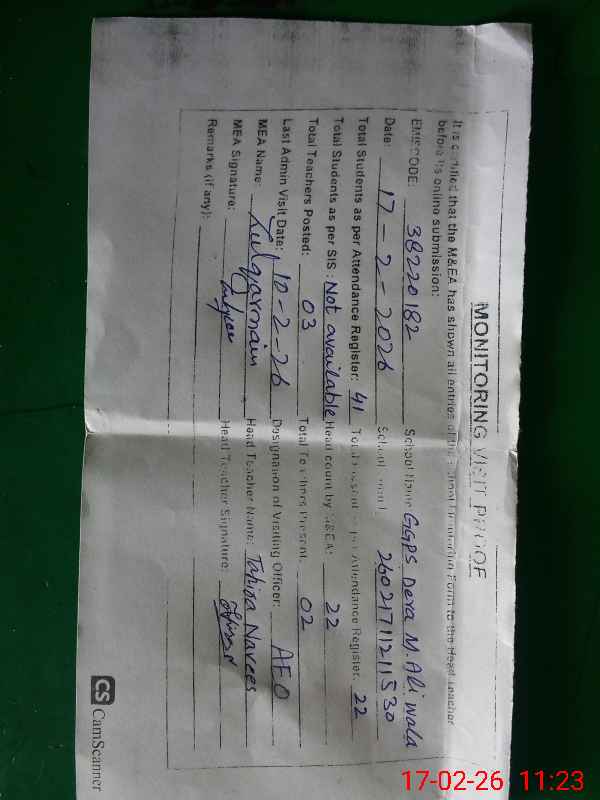 MONITORING VISIT PROOF
It is certified that the M&EA has shown all entries of the School Monitoring Form to the Head Teacher
before its online submission:
EMISCODE: 38220182 School Name GGPS Dera M. Ali wala
Date: 17-2-2026 School 26021711211530
Total Students as per Attendance Register: 41 Total Present as per Attendance Register. 22
Total Students as per SIS: Not available Head count by M&EA: 22
Total Teachers Posted: 03 Total Teachers Present. 02
Last Admin Visit Date: 10-2-26 Designation of Visiting Officer: AEO
MEA Name: Zulqarnain Head Teacher Name: Tahira
MEA Signature: Head Teacher Signature:
Remarks (if any):
CS CamScanner
17-02-26 11:23